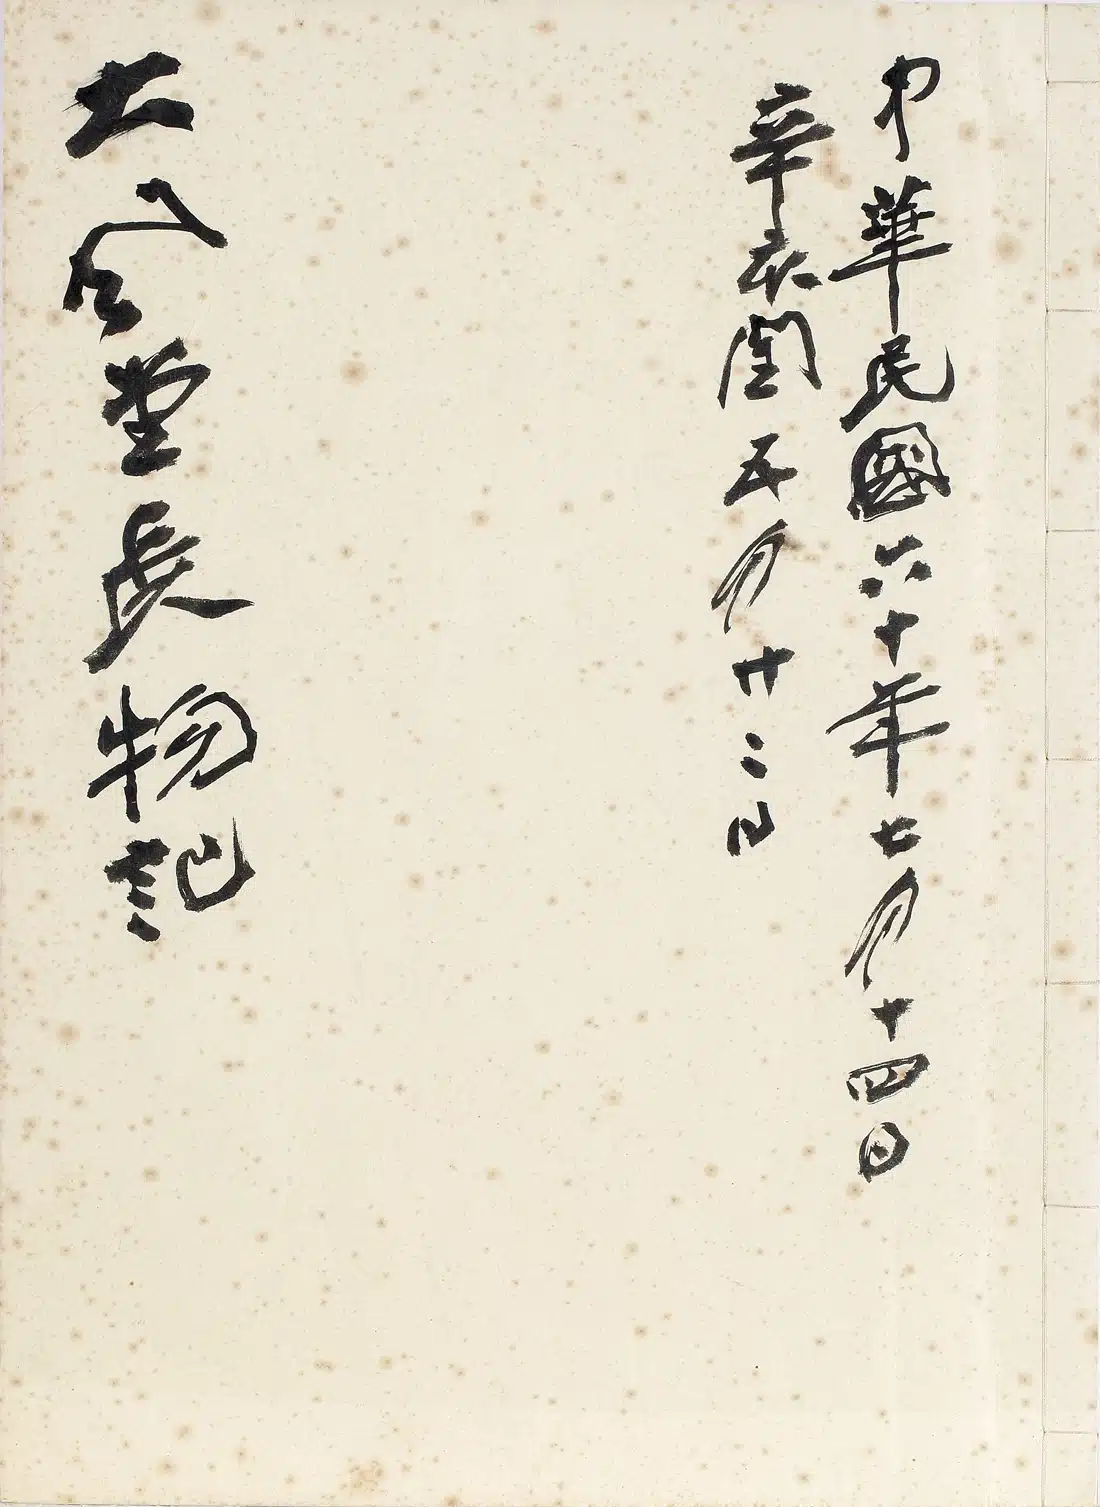 中華民國六十年七月十四日
辛亥閏五月廿二日
大風堂長物記